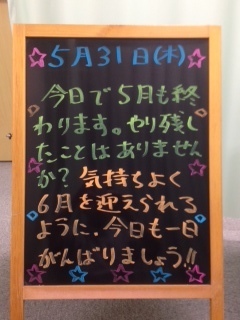 5月31日(木)
今日で5月も終
わります。やり残し
たことはありません
か?気持ちよく
6月を迎えられる
ように、今日も一日
がんばりましょう!!